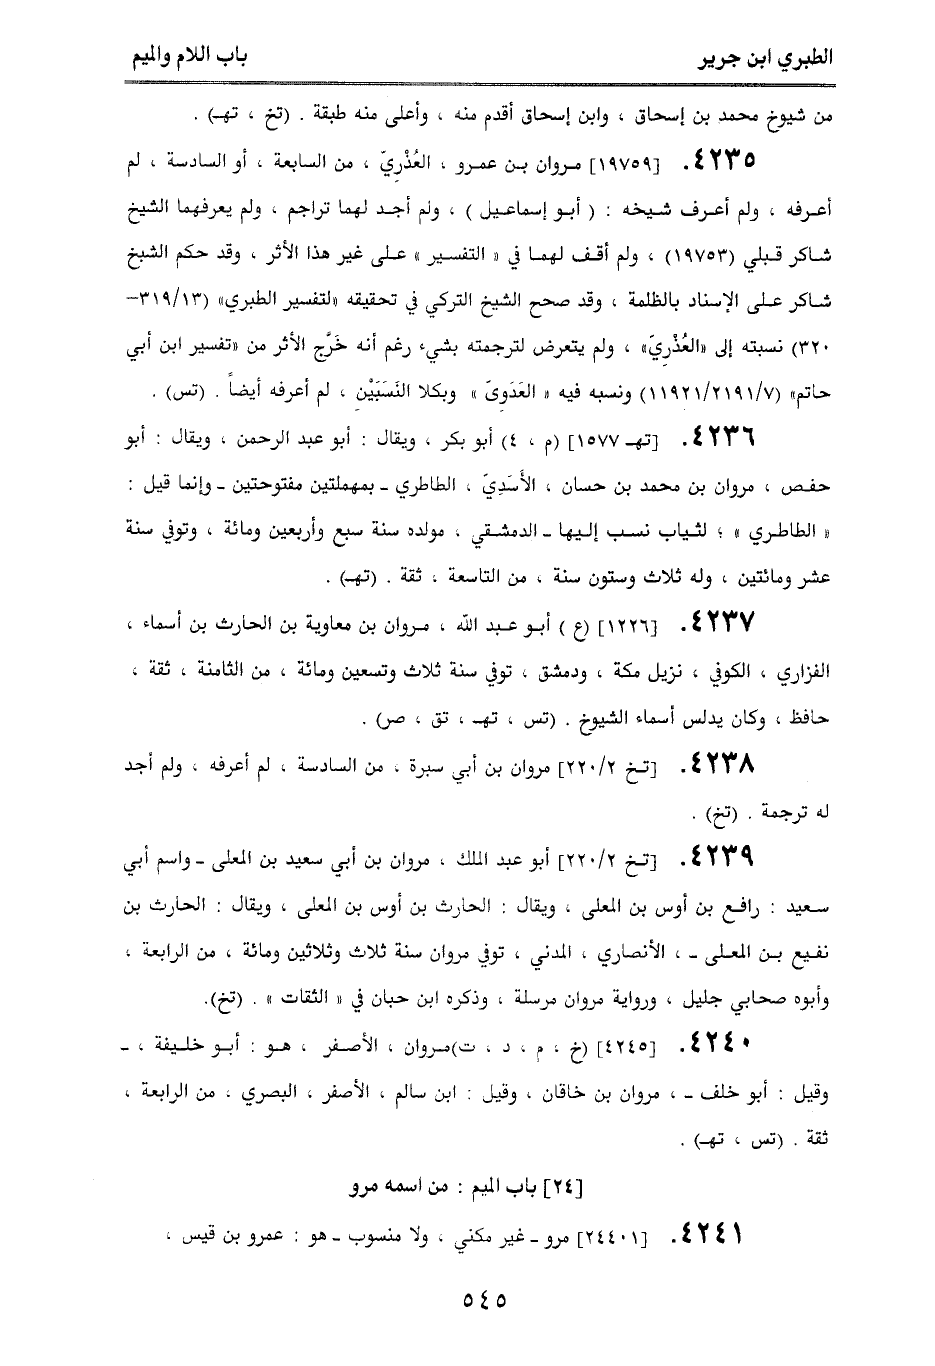 الطبري ابن جرير
باب اللام والميم
من شيوخ محمد بن إسحاق ، وابن إسحاق أقدم منه ، وأعلى منه طبقة . (تخ ، تهـ) .
٤٢٣٥. [١٩٧٥٩] مروان بن عمرو ، العُذْريّ ، من السابعة ، أو السادسة ، لم
أعرفه ، ولم أعرف شيخه : ( أبو إسماعيل ) ، ولم أجد لهما تراجم ، ولم يعرفهما الشيخ
شاكر قبلي (١٩٧٥٣) ، ولم أقف لهما في « التفسير » على غير هذا الأثر ، وقد حكم الشيخ
شاكر على الإسناد بالظلمة ، وقد صحح الشيخ التركي في تحقيقه «لتفسير الطبري» (٣١٩/١٣–
٣٢٠) نسبته إلى «العُذْريّ» ، ولم يتعرض لترجمته بشيء رغم أنه خَرَّج الأثر من «تفسير ابن أبي
حاتم» (١١٩٢١/٢١٩١/٧) ونسبه فيه « العَدَويّ » وبكلا النَسَبَيْن ، لم أعرفه أيضاً . (تس) .
٤٢٣٦. [تهـ ١٥٧٧] (م ، ٤) أبو بكر ، ويقال : أبو عبد الرحمن ، ويقال : أبو
حفص ، مروان بن محمد بن حسان ، الأَسَديّ ، الطاطري ـ بمهملتين مفتوحتين ـ وإنما قيل :
« الطاطري » ؛ لثياب نسب إليها ـ الدمشقي ، مولده سنة سبع وأربعين ومائة ، وتوفي سنة
عشر ومائتين ، وله ثلاث وستون سنة ، من التاسعة ، ثقة . (تهـ) .
٤٢٣٧. [١٢٢٦] (ع ) أبو عبد الله ، مروان بن معاوية بن الحارث بن أسماء ،
الفزاري ، الكوفي ، نزيل مكة ، ودمشق ، توفي سنة ثلاث وتسعين ومائة ، من الثامنة ، ثقة ،
حافظ ، وكان يدلس أسماء الشيوخ . (تس ، تهـ ، تق ، صر) .
٤٢٣٨. [تخ ٢٢٠/٢] مروان بن أبي سبرة ، من السادسة ، لم أعرفه ، ولم أجد
له ترجمة . (تخ) .
٤٢٣٩. [تخ ٢٢٠/٢] أبو عبد الملك ، مروان بن أبي سعيد بن المعلى ـ واسم أبي
سعيد : رافع بن أوس بن المعلى ، ويقال : الحارث بن أوس بن المعلى ، ويقال : الحارث بن
نفيع بن المعلى ـ ، الأنصاري ، المدني ، توفي مروان سنة ثلاث وثلاثين ومائة ، من الرابعة ،
وأبوه صحابي جليل ، ورواية مروان مرسلة ، وذكره ابن حبان في « الثقات » . (تخ).
٤٢٤٠. [٤٢٤٥] (خ ، م ، د ، ت)مروان ، الأصفر ، هو : أبو خليفة ، ـ
وقيل : أبو خلف ـ ، مروان بن خاقان ، وقيل : ابن سالم ، الأصفر ، البصري ، من الرابعة ،
ثقة . (تس ، تهـ) .
[٢٤] باب الميم : من اسمه مرو
٤٢٤١. [٢٤٤٠١] مرو ـ غير مكني ، ولا منسوب ـ هو : عمرو بن قيس ،
٥٤٥